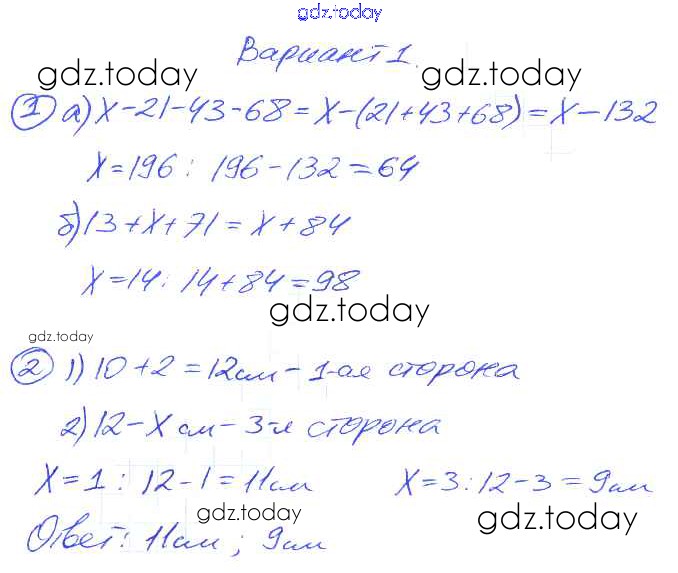 gdz.today
Вариант 1.
gdz.today gdz.today
1 а) х-21-43-68=х-(21+43+68)=х-132
х=196: 196-132=64
б) 13+х+71=х+84
х=14: 14+84=98
gdz.today
gdz.today
2 1) 10+2=12см-1-ая сторона
2) 12-х см-3-я сторона
х=1: 12-1=11см х=3: 12-3=9см
gdz.today gdz.today
Ответ: 11см; 9см